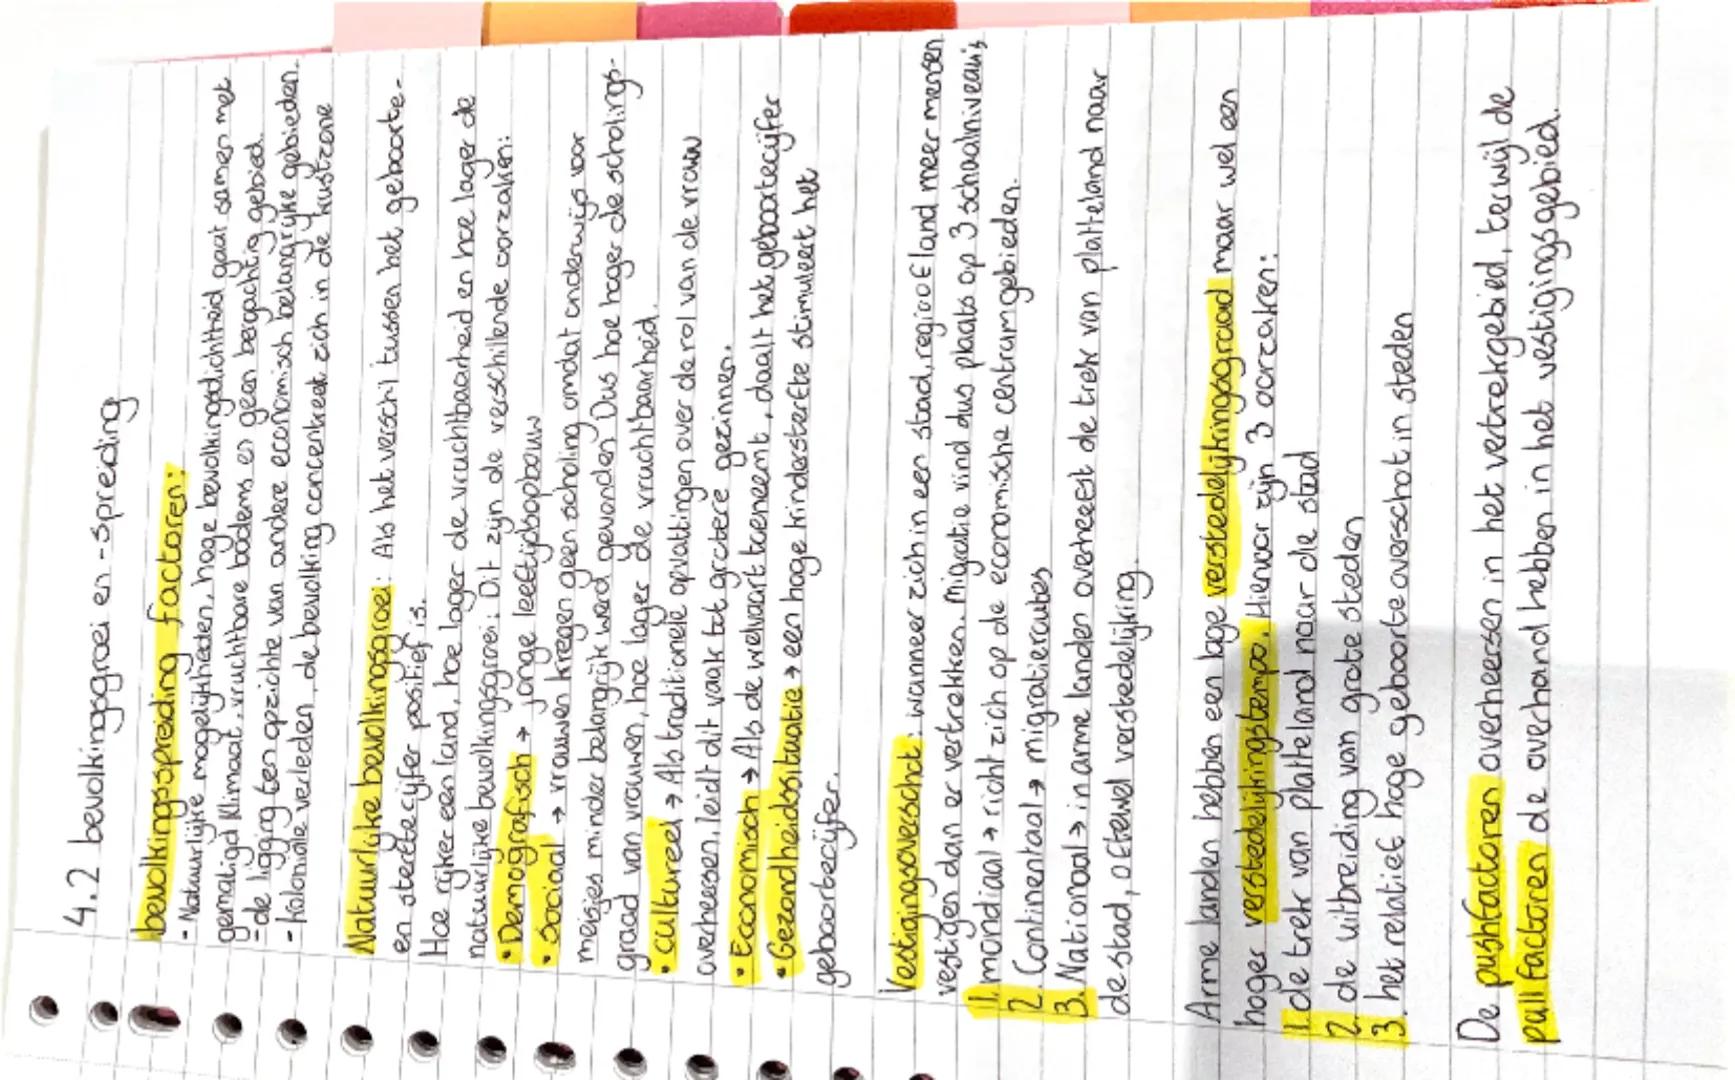 4.2 bevolkingsgroei en -spreiding
bevolkingsspreiding factoren:
- Natuurlijke mogelijkheden, hoge bevolkingsdichtheid gaat samen met
gematigd klimaat, vruchtbare bodems en geen bergachtig gebied.
- de ligging ten opzichte van andere economisch belangrijke gebieden.
- koloniale verleden, de bevolking concentreet zich in de kustzone
Natuurlijke bevolkingsgroei: Als het verschil tussen het geboorte-
en sterftecijfer positief is.
Hoe rijker een land, hoe lager de vruchtbaarheid en hoe lager de
natuurlijke bevolkingsgroei. Dit zijn de verschillende oorzaken:
• Demografisch → jonge leeftijdsopbouw
• Sociaal → vrouwen kregen geen scholing omdat onderwijs voor
meisjes minder belangrijk werd gevonden. Dus hoe hoger de scholings-
graad van vrouwen, hoe lager de vruchtbaarheid.
• cultureel → Als traditionele opvattingen over de rol van de vrouw
overheersen, leidt dit vaak tot grotere gezinnen.
• Economisch → Als de welvaart toeneemt, daalt het geboortecijfer
• Gezondheidssituatie → een hoge kindersterfte stimuleert het
geboortecijfer.
Vestigingsoverschot: wanneer zich in een stad, regio of land meer mensen
vestigen dan er vertrekken. Migratie vind dus plaats op 3 schaalniveau's
1. mondiaal → richt zich op de economische centrumgebieden.
2. Continentaal → migratieroutes
3. Nationaal → in arme landen overheerst de trek van platteland naar
de stad, oftewel verstedelijking.
Arme landen hebben een lage verstedelijkingsgraad maar wel een
hoger verstedelijkingstempo. Hiervoor zijn 3 oorzaken:
1. de trek van platteland naar de stad
2. de uitbreiding van grote steden
3. het relatief hoge geboorte overschot in steden
De pushfactoren overheersen in het vertrekgebied, terwijl de
pull factoren de overhand hebben in het vestigingsgebied.